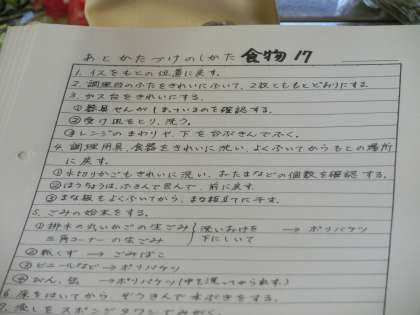 あとかたづけのしかた 食物17
1. イスをもとの位置に戻す。
2. 調理台のふたをきれいにふいて、2枚とももとどおりにする。
3. ガス台をきれいにする。
①器具せんがしまっているのを確認する。
②受け皿をとり、洗う。
③レンジのまわりや、下を台ぶきんでふく。
4. 調理用具、食器をきれいに洗い、よくふいてからもとの場所
に戻す。
①水切りかごもきれいに洗い、おたまなどの個数を確認する。
②ほうちょうは、ふきんで包んで、前に戻す。
③まな板もよくふいてから、まな板立てに干す。
5. ごみの始末をする。
①排水の丸いかごの生ごみ
三角コーナーの生ごみ
洗いおけを
下にしいて
→ ポリバケツ
②紙くず → ごみばこ
③ビニールなど → ポリバケツ
④びん、缶 → ポリバケツ(中を洗ってからすてる)
6. 床をはいてから、ぞうきんで水ぶきをする。
7. 流しをスポンジタワシでみがく。